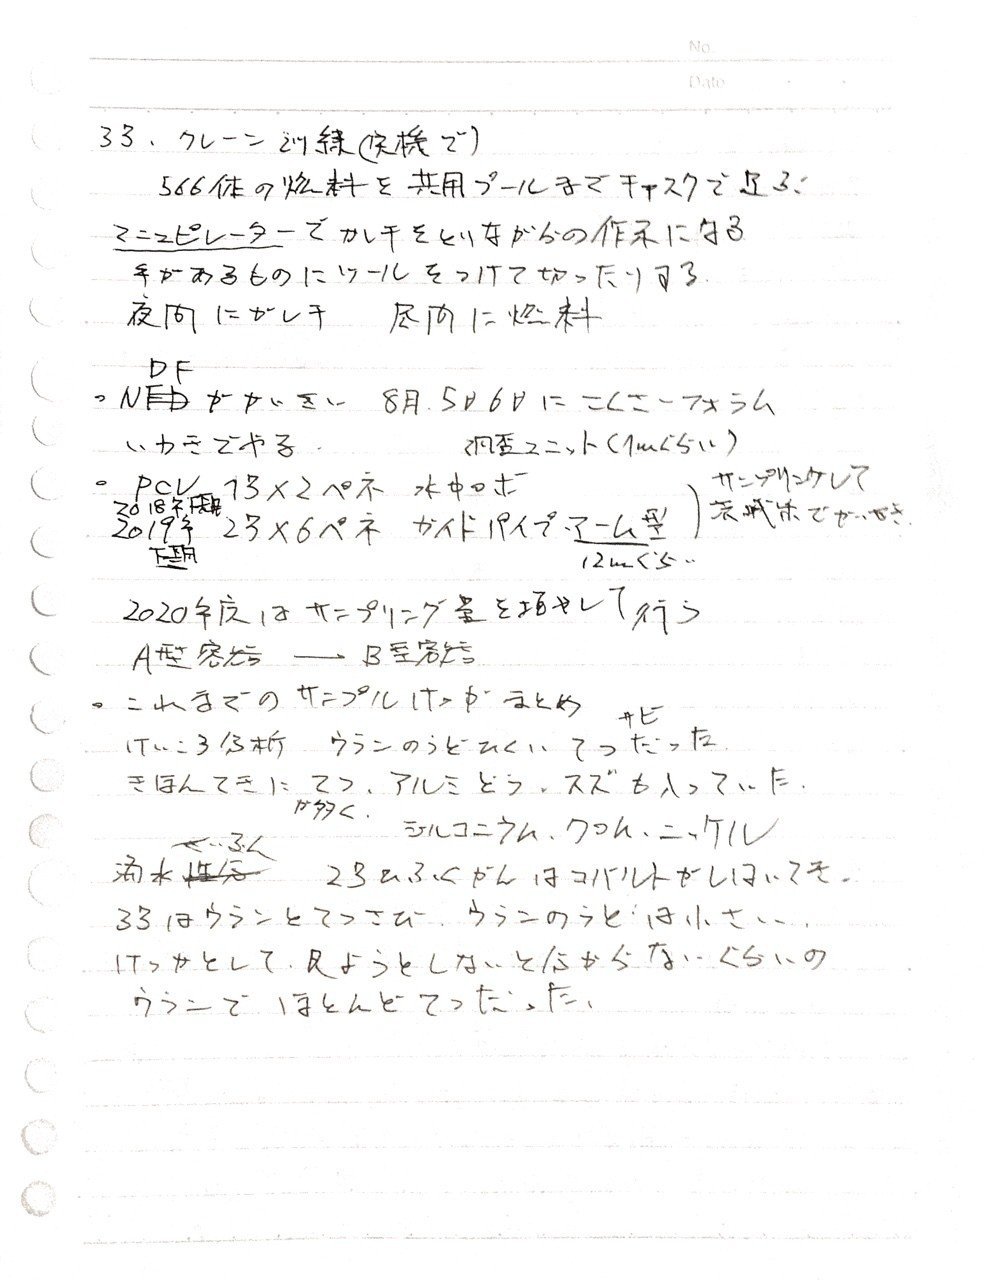 No.
Date
33. クレーン訓練(実機で)
566体の燃料を共用プールまでキャスクで運ぶ
マニュピレーターでガレキをとりながらの作業になる
手があるものにツールをつけて切ったりする
夜間にガレキ 昼間に燃料
DF
・Nがかいさい 8月5日6日にこくさいフォーラム
いわきでやる 調査ユニット(1mぐらい)
・PCV 1号X2ペネ 水中ロボ サンプリングして
2018年下期 茨城県で
2019年 2号X6ペネ ガイドパイプ・アーム型
下期 12mぐらい
2020年度はサンプリング量を増やして行う
A型容器 → B型容器
・これまでのサンプルけっかまとめ
サビ
けいこう分析 ウランのうどひくい てつだった
きほんてきにてつ、アルミどう、スズも入っていた
が多く、
ジルコニウム、クロム、ニッケル
滞水 2号ひふくがんはコバルトがしはいてき
3号はウランとてつさび、ウランのうどは小さい、
けっかとして、見ようとしないと分からないぐらいの
ウランで ほとんどてつだった、